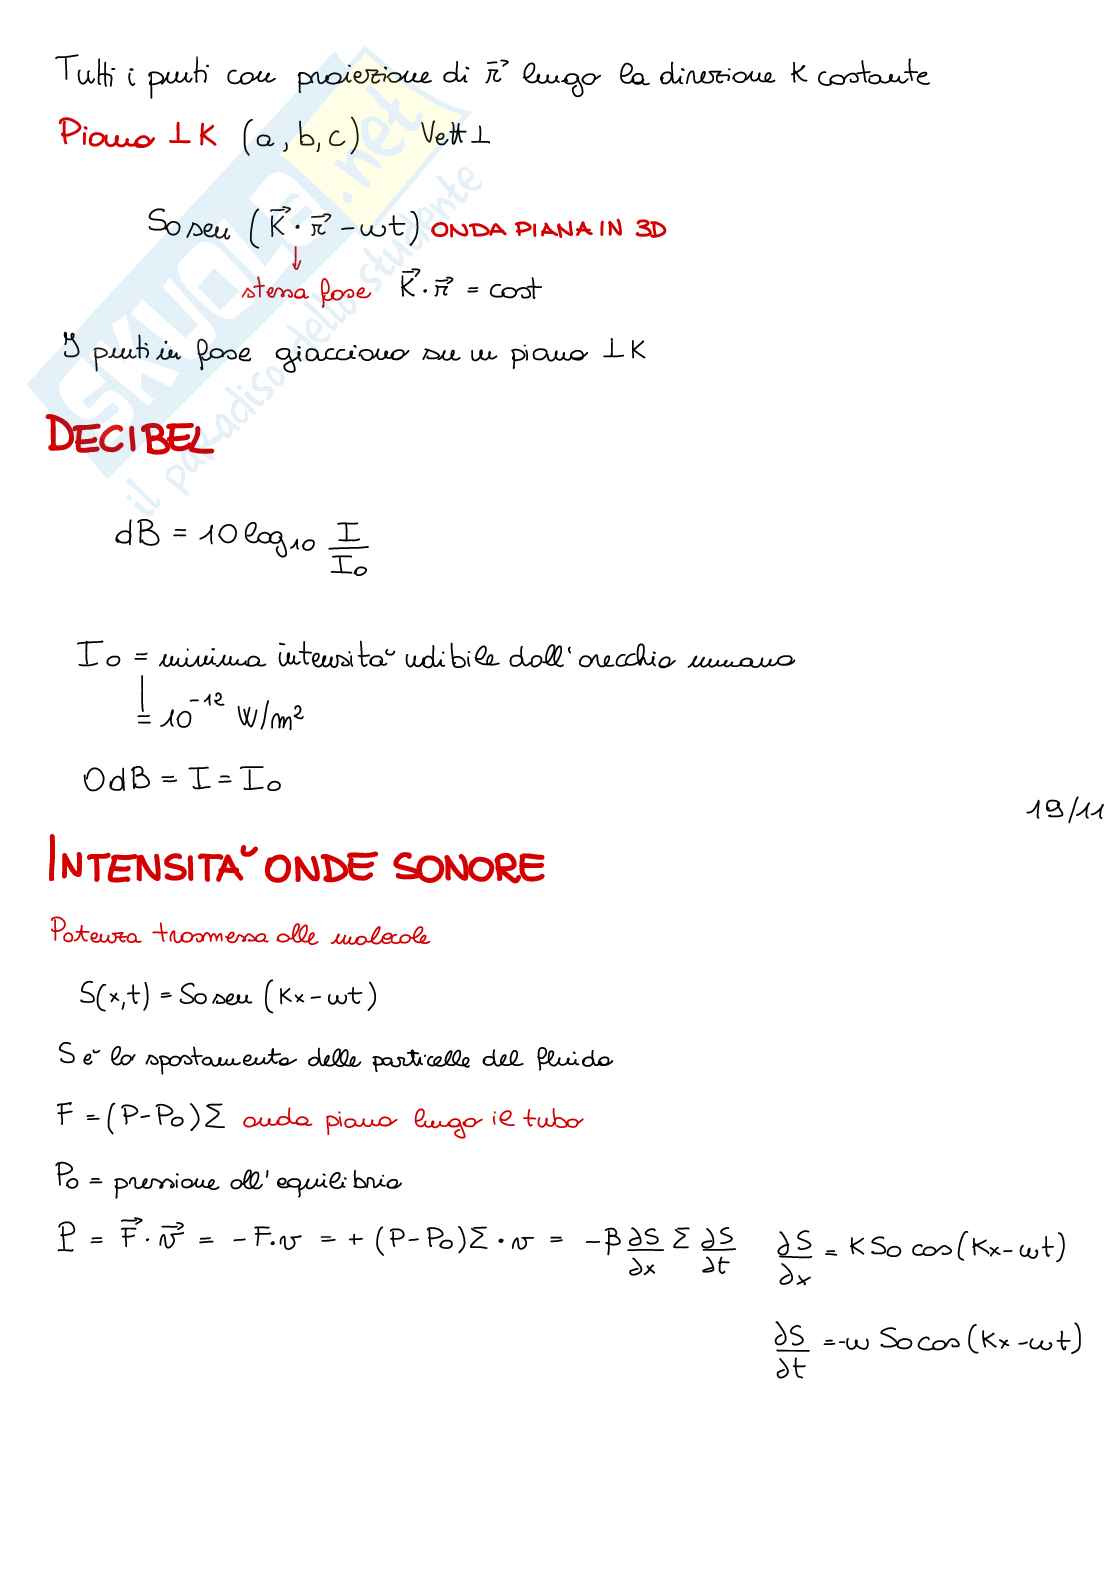 Tutti i punti con proiezione di r⃗ lungo la direzione K costante
Piano ⊥ K (a, b, c) Vett ⊥
So sen (K⃗ · r⃗ - ωt) ONDA PIANA IN 3D
↓
stessa fase K⃗ · r⃗ = cost
I punti in fase giacciono su un piano ⊥ K
DECIBEL
dB = 10 log₁₀ I/I₀
I₀ = minima intensità udibile dall'orecchio umano
= 10⁻¹² W/m²
0dB = I = I₀
19/11
INTENSITÀ ONDE SONORE
Potenza trasmessa alle molecole
S(x,t) = So sen (Kx - ωt)
S è lo spostamento delle particelle del fluido
F = (P - P₀) Σ onda piana lungo il tubo
P₀ = pressione all'equilibrio
P = F⃗ · v⃗ = - F · v = + (P - P₀) Σ · v = - β ∂S/∂x Σ ∂S/∂t ∂S/∂x = K So cos (Kx - ωt)
∂S/∂t = -ω So cos (Kx - ωt)
SKUOLA.net
il paradiso dello studente